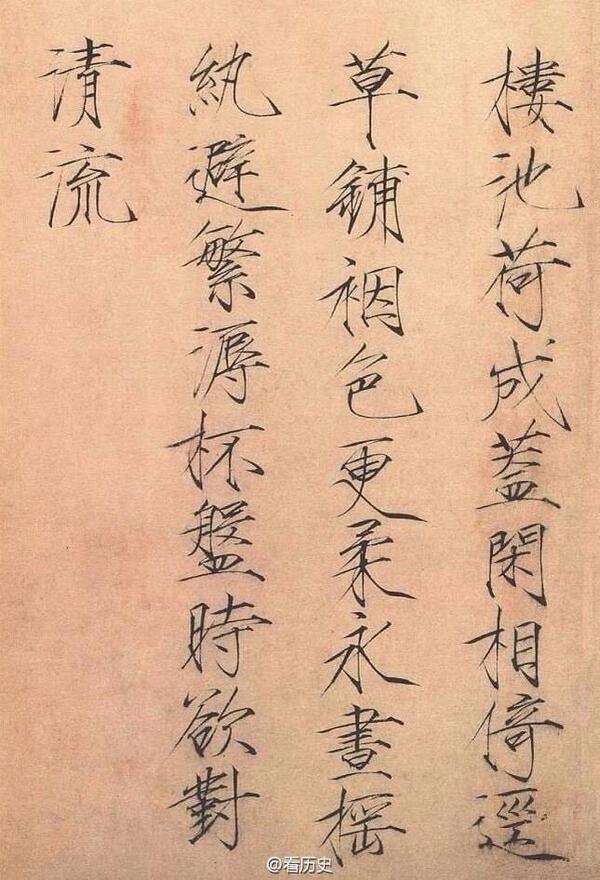 樓池荷成蓋閑相倚逕
草鋪裀色更柔永晝搖
紈避繁溽杯盤時欲對
清流
@看历史